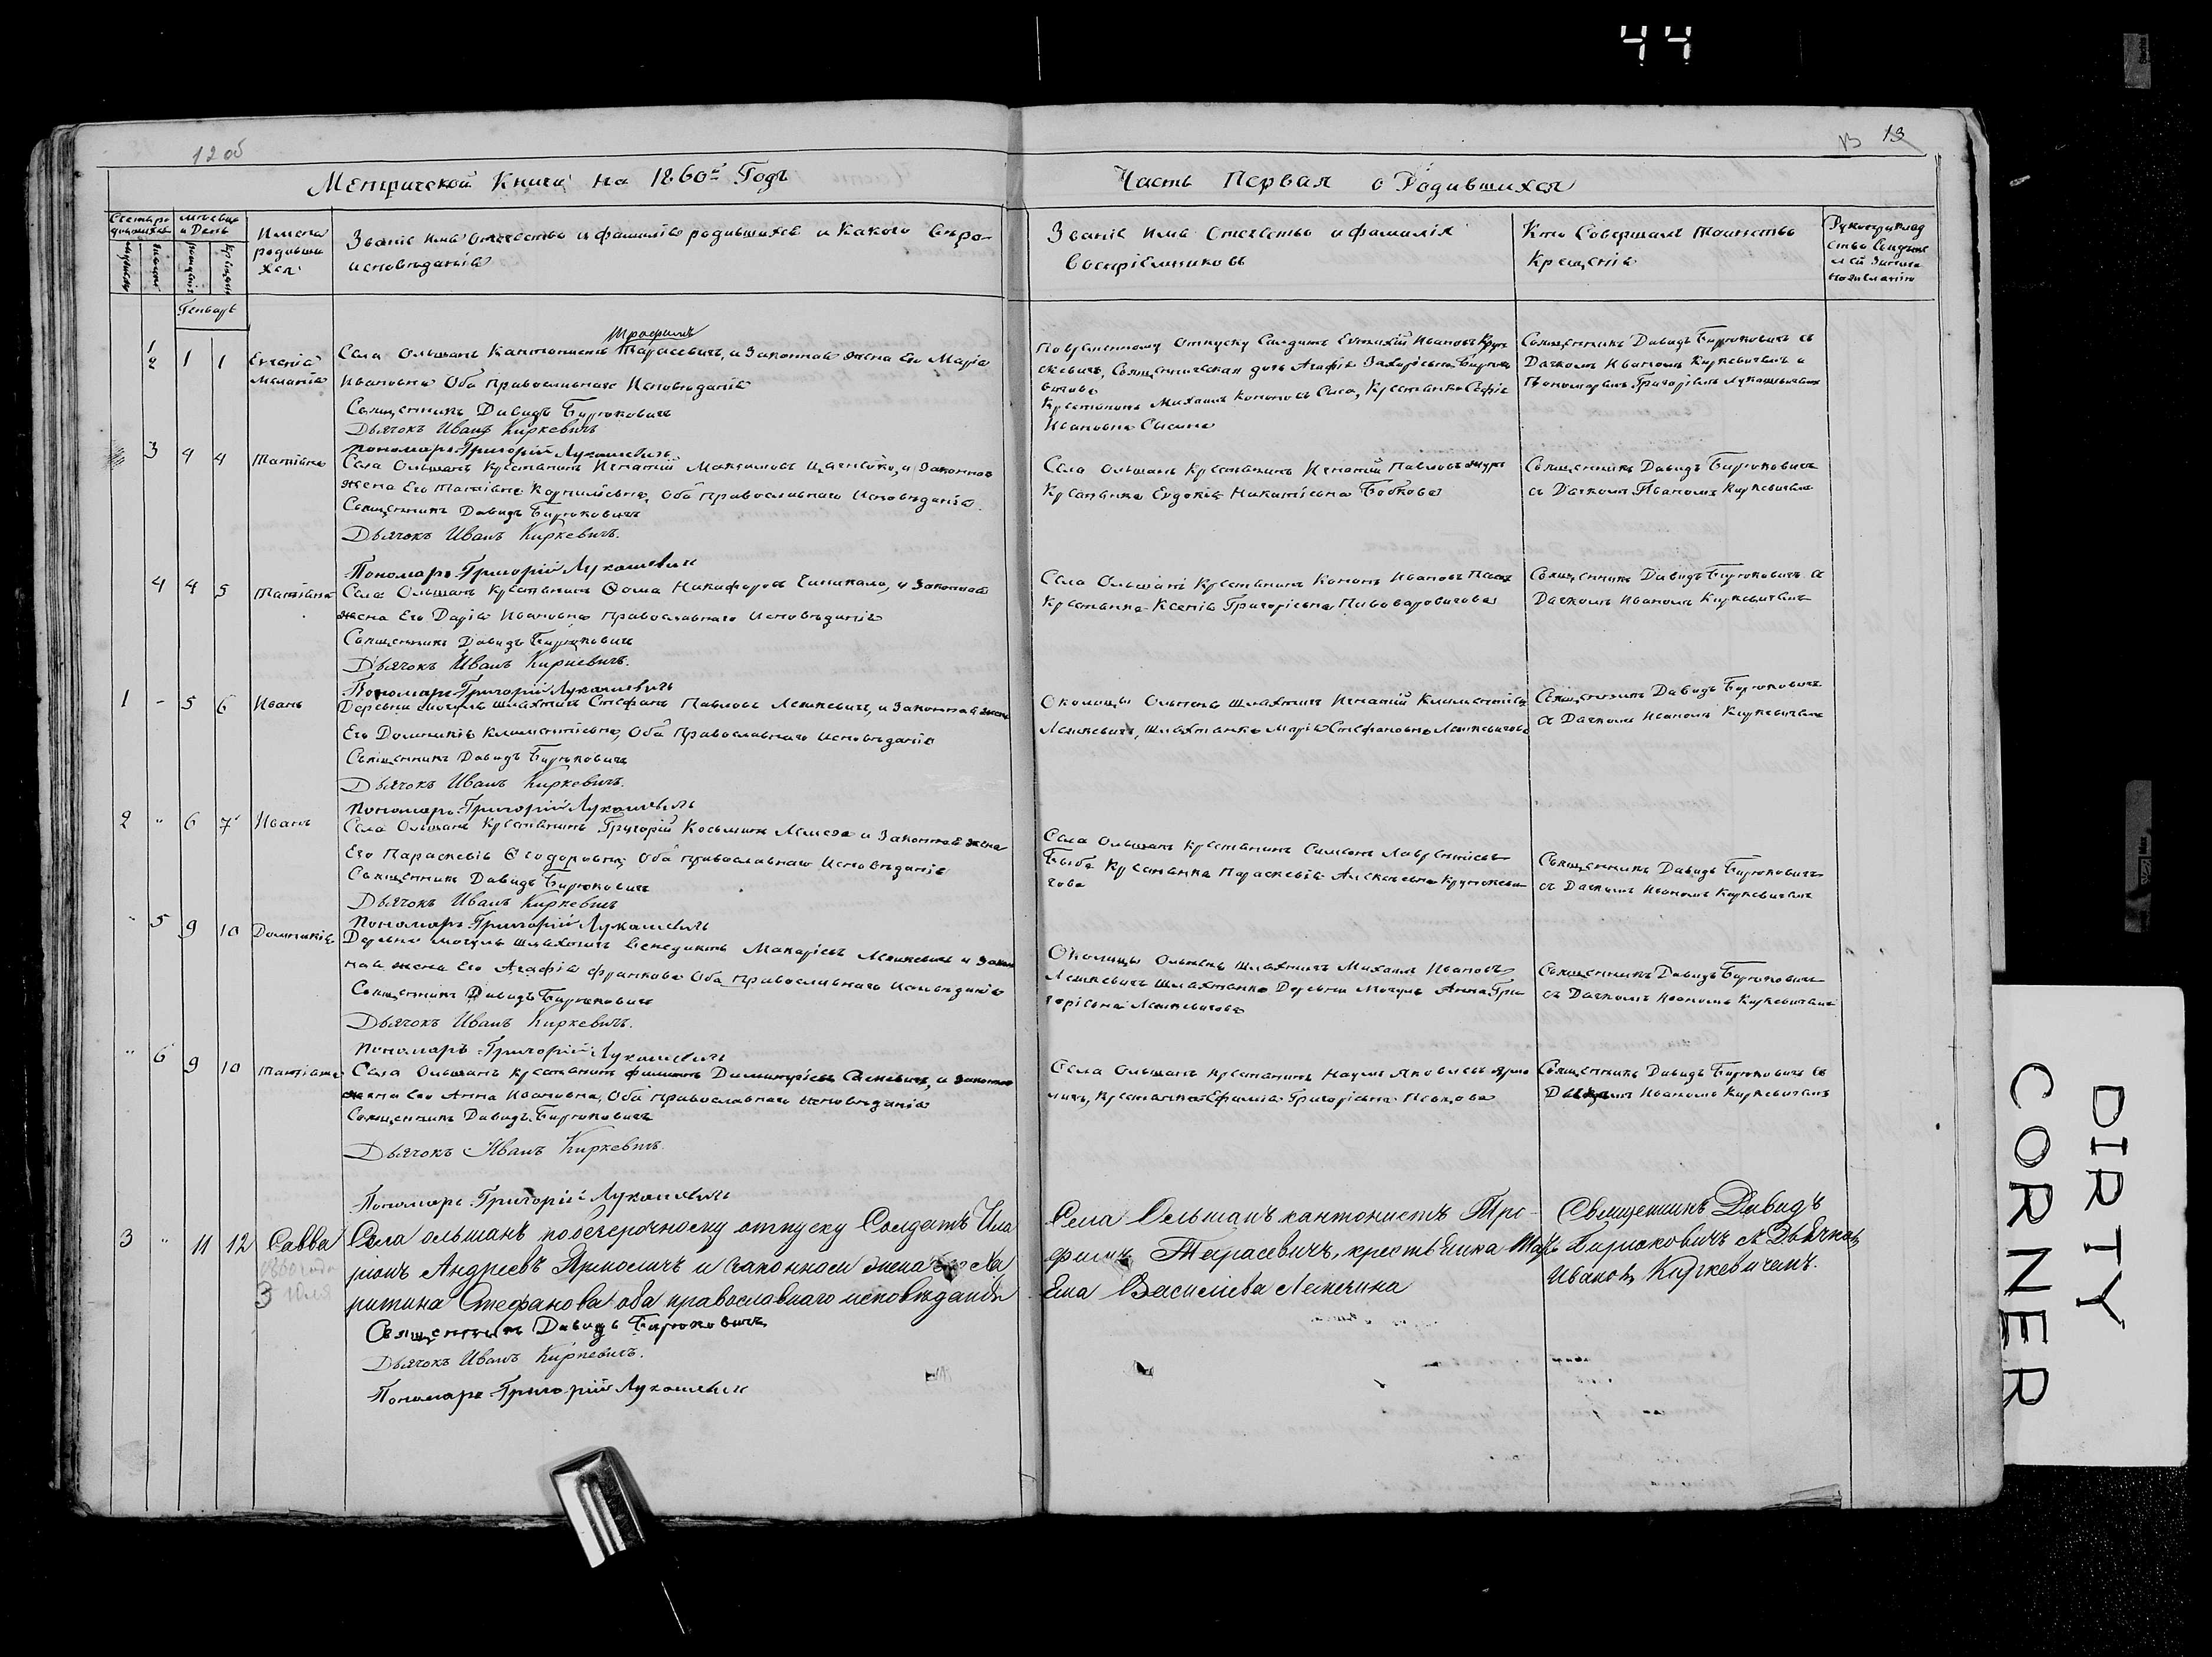 44
12 об
13 13
Метрической Книги на 1860й Годъ
Часть Первая о Родившихся
Имена родивши хся
Званіе имя отечество и фамилія родившихся и какого вѣро-
исповѣданія
Званіе имя отечество и фамилія
воспріемниковъ
Кто Совершалъ таинство
Крещенія
Генварь
1
2 1 1 Евгенія
Меланія
Трофимъ
Села Ольшанъ Кантонистъ Тарасевичъ, и Законная жена Его Марія
Ивановна Оба православнаго Исповѣданія
Священникъ Давидъ Бирюковичъ
Дьячокъ Иванъ Киркевичъ
Пономарь Григорій Лукашевичъ
отпуску Солдатъ Ивановъ
Священническая дочь Агафія Захаріевна
Крестьянинъ Михаилъ Крестьянка Софія
Ивановна
Священникъ Давидъ Бирюковичъ съ
Дячкомъ Иваномъ Киркевичемъ и
Пономаремъ Григоріемъ Лукашевичемъ
3 4 4 Татіана
Села Ольшанъ Крестьянинъ Игнатій Максимовъ и Законная
жена Его Татіана Корниліевна, Оба православнаго Исповѣданія.
Священникъ Давидъ Бирюковичъ
Дьячокъ Иванъ Киркевичъ.
Пономарь Григорій Лукашевичъ
Села Ольшанъ Крестьянинъ Игнатій Павловъ
Крестьянка Евдокія Никитіевна Бобкова
Священникъ Давидъ Бирюковичъ
съ Дячкомъ Иваномъ Киркевичемъ
4 4 5 Татіана
Села Ольшанъ Крестьянинъ Ѳома Никифоровъ и Законная
жена Его Дарія Ивановна православнаго Исповѣданія
Священникъ Давидъ Бирюковичъ
Дьячокъ Иванъ Киркевичъ.
Пономарь Григорій Лукашевичъ
Села Ольшанъ Крестьянинъ Кононъ Ивановъ
Крестьянка Ксенія Григоріевна Пивоваровичова
Священникъ Давидъ Бирюковичъ съ
Дячкомъ Иваномъ Киркевичемъ
1 - 5 6 Иванъ
Деревни Могуль шляхтичъ Стефанъ Павловъ Лешкевичъ, и Законная жена
Его Домникія Климентіевна, Оба Православнаго исповѣданія
Священникъ Давидъ Бирюковичъ
Дьячокъ Иванъ Киркевичъ.
Пономарь Григорій Лукашевичъ
Околицы Ольпень Шляхтичъ Игнатій Климентіевъ
Лешкевичъ, Шляхтянка Марія Стефановна Лешкевичова
Священникъ Давидъ Бирюковичъ
съ Дячкомъ Иваномъ Киркевичемъ
2 " 6 7 Иванъ
Села Ольшанъ Крестьянинъ Григорій Косьминъ и Законная жена
Его Параскевія Ѳеодоровна Оба православнаго Исповѣданія
Священникъ Давидъ Бирюковичъ
Дьячокъ Иванъ Киркевичъ
Пономарь Григорій Лукашевичъ
Села Ольшанъ Крестьянинъ Симеонъ Лаврентіевъ
Крестьянка Параскевія Алексѣевна
Священникъ Давидъ Бирюковичъ
съ Дячкомъ Иваномъ Киркевичемъ
" 5 9 10 Домникія
Деревни Могуль шляхтичъ Венедиктъ Макаріевъ Лешкевичъ и Закон
ная жена Его Агафія Франкова Оба православнаго Исповѣданія
Священникъ Давидъ Бирюковичъ
Дьячокъ Иванъ Киркевичъ.
Пономарь Григорій Лукашевичъ
Околицы Ольпень Шляхтичъ Михаилъ Ивановъ
Лешкевичъ Шляхтянка Деревни Могуль Анна Гри
горіевна Лешкевичова
Священникъ Давидъ Бирюковичъ
съ Дячкомъ Иваномъ Киркевичемъ
" 6 9 10 Татіана
Села Ольшанъ Крестьянинъ Филиппъ Димитріевъ и Законная
жена Его Анна Ивановна, Оба православнаго Исповѣданія
Священникъ Давидъ Бирюковичъ
Дьячокъ Иванъ Киркевичъ.
Пономарь Григорій Лукашевичъ
Села Ольшанъ Крестьянинъ Наумъ Яковлевъ Ярмо
личъ, Крестьянка Ефимія Григоріевна Певцова
Священникъ Давидъ Бирюковичъ съ
Дячкомъ Иваномъ Киркевичемъ
3 " 11 12 Савва
Села ольшанъ побезсрочному отпуску Солдатъ Ила
ріонъ Андреевъ Ярмоличъ и законная жена Его Ха
ритина Стефанова оба православнаго исповѣданія
Священникъ Давидъ Бирюковичъ
Дьячокъ Иванъ Киркевичъ.
Пономарь Григорій Лукашевичъ
Села Ольшанъ кантонистъ Тро-
фимъ Тарасевичъ, крестьянка Тать
яна Василіева
Священникъ Давидъ
Бирюковичъ съ Дьячкомъ
Иваномъ Киркевичемъ.
DIRTY
CORNER